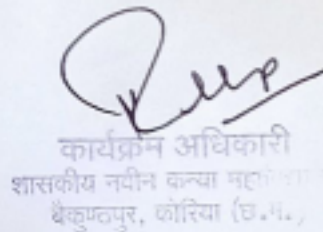 कार्यक्रम अधिकारी
शासकीय नवीन कन्या
बैकुण्ठपुर, कोरिया (छ.ग.)